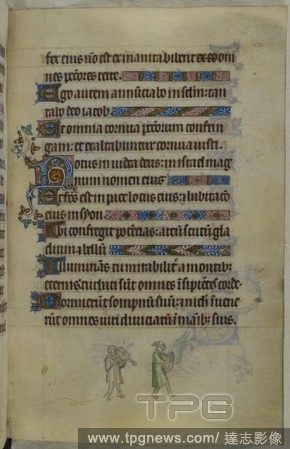 fex eius nō est exinanita bibent ex eo om
nes pc̄ores terre.
Ego autem annūciabo in sclm: can
tabo deo iacob.
Et omnia cornua pc̄corum confrin
gam: et exaltabuntur cornua iusti.
Notus in iudea deus: in israel mag
num nomen eius
Et fcūs est in pace locus eius: et habitaco
eius in syon.
Ibi confregit potēcias: arcū scutū gla
dium et bellū
Illuminās tu mirabilit a montib:
eternis turbati sūt omnes īsipiētes corde.
Dormierūt sompnū suū: et nichil īuene
rūt omnes uiri diuiciarū ī manib: suis.
TPG
www.tpgnews.com/ 達志影像